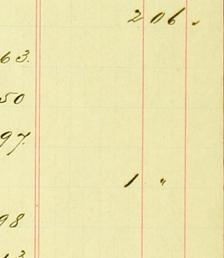 206.
63.
50
97.
1 "
98